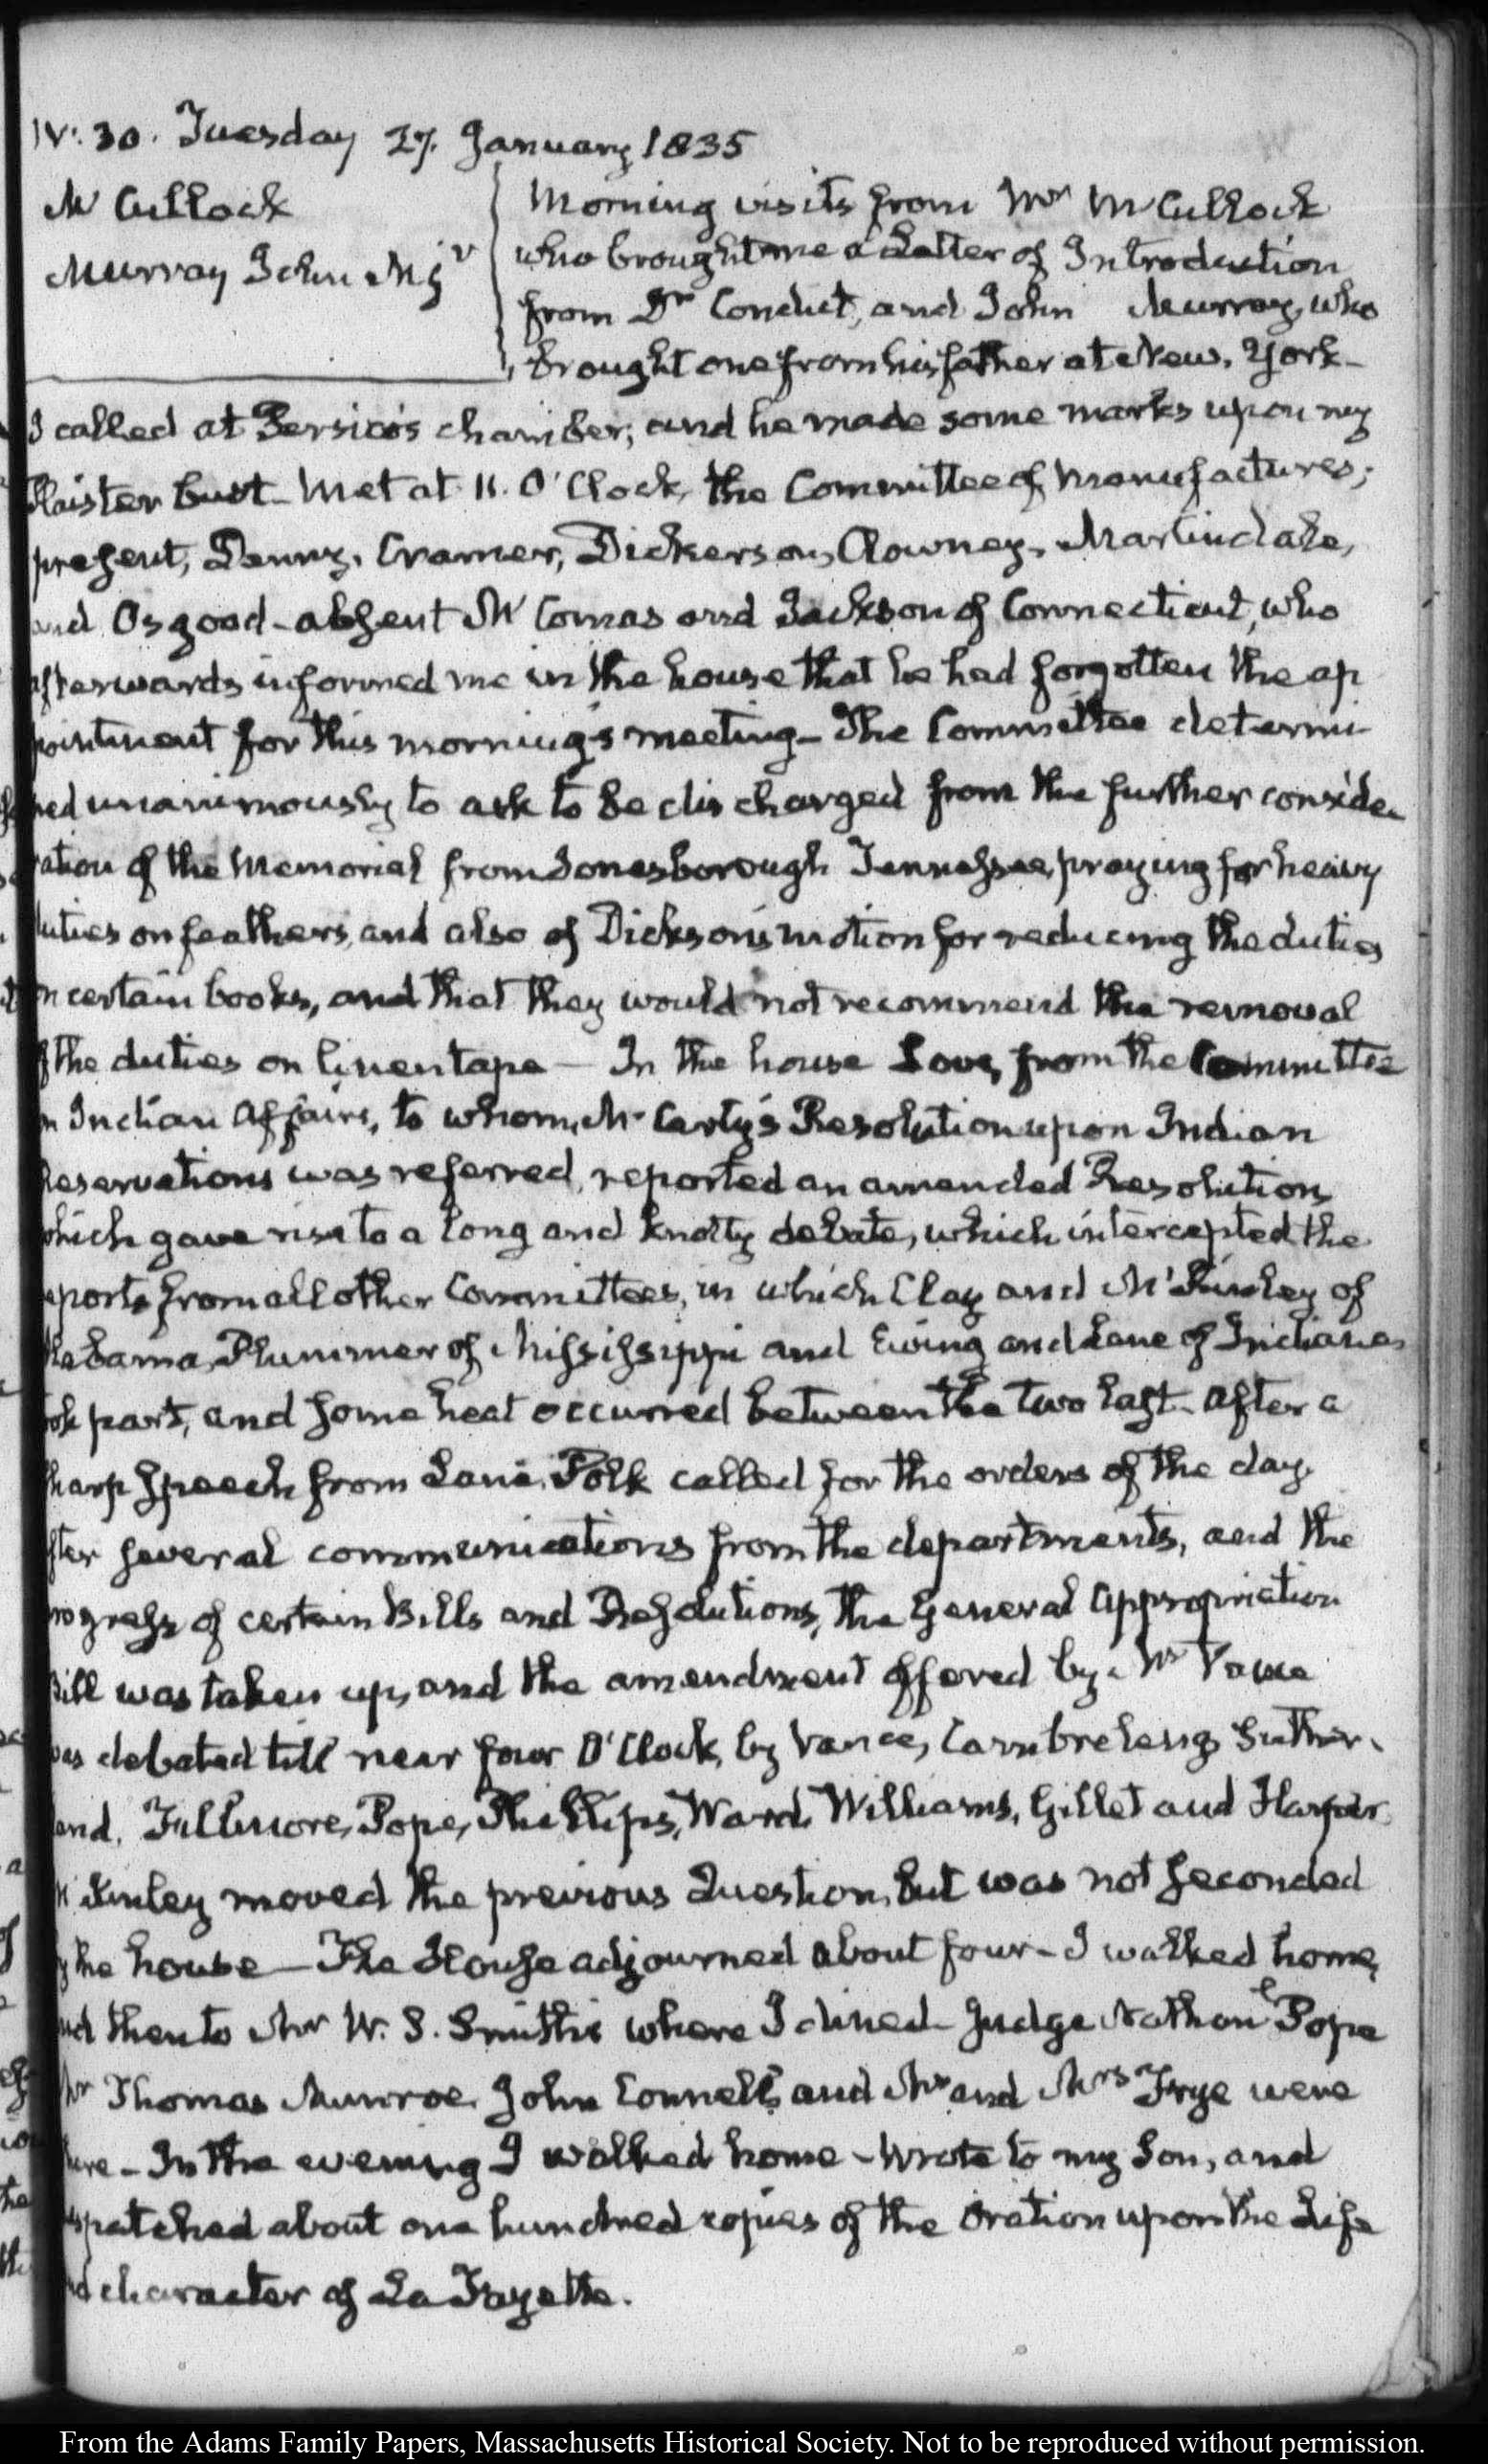 IV: 30. Tuesday 27. January 1835
McCullock
Murray John Mj
Morning visits from Mr McCullock
who brought me a Letter of Introduction
from Dr Condict, and John Murray, who
brought one from his father at New-York—
I called at Persico's chamber; and he made some marks upon my
Plaister bust— Met at 11. O'Clock, the Committee of Manufactures;
present, Denny, Cramer, Dickerson, Clowney, Martindale,
and Osgood— absent McComas and Jackson of Connecticut, who
afterwards informed me in the house that he had forgotten the ap
pointment for this morning's meeting— The Committee determi-
ned unanimously to ask to be discharged from the further conside-
ration of the Memorial from Jonesborough Tennessee, praying for heavy
duties on feathers, and also of Dickson's motion for reducing the duties
on certain books, and that they would not recommend the removal
of the duties on linen tape — In the house Love, from the Committee
on Indian Affairs, to whom, McCarty's Resolution upon Indian
Reservations was referred, reported an amended Resolution,
which gave rise to a long and knotty debate, which intercepted the
reports from all other Committees, in which Clay and McKinley of
Alabama, Plummer of Mississippi and Ewing and Lane of Indiana
took part, and some heat occurred between the two last— After a
sharp speech from Lane, Polk called for the orders of the day.
After several communications from the departments, and the
progress of certain Bills and Resolutions, the General Appropriation
Bill was taken up, and the amendment offered by Mr Vance
was debated till near four O'Clock, by Vance, Cambreleng, Suther-
land, Fillmore, Pope, Phillips, Ward, Williams, Gillet and Harper.
McKinley moved the previous Question, but was not seconded
by the house — The House adjourned about four— I walked home,
and then to Mr W. S. Smith's where I dined— Judge Nathanl Pope
Mr Thomas Munroe, John Connell, and Mr and Mrs Frye were
there— In the evening I walked home— Wrote to my Son, and
despatched about one hundred copies of the Oration upon the Life
and character of La Fayette.
From the Adams Family Papers, Massachusetts Historical Society. Not to be reproduced without permission.